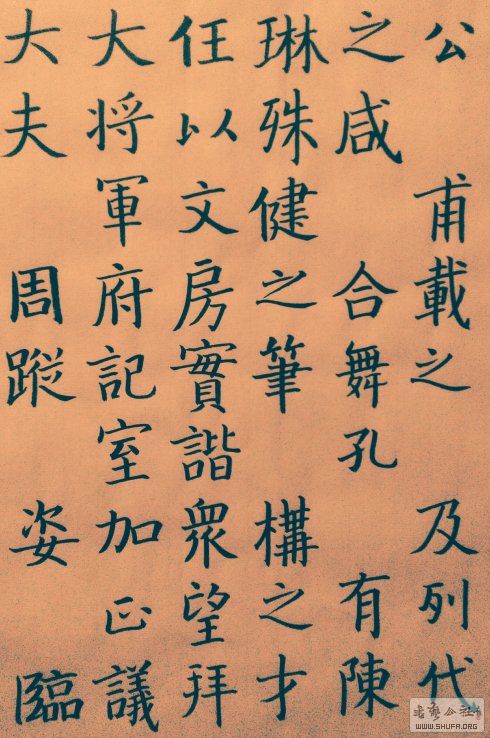 公　甫載之　及列代
之咸　合舞孔　有陳
琳殊健之筆　構之才
任以文房實諧衆望拜
大将軍府記室加正議
大夫　周蹤　姿　臨
WWW.SHUFA.ORG